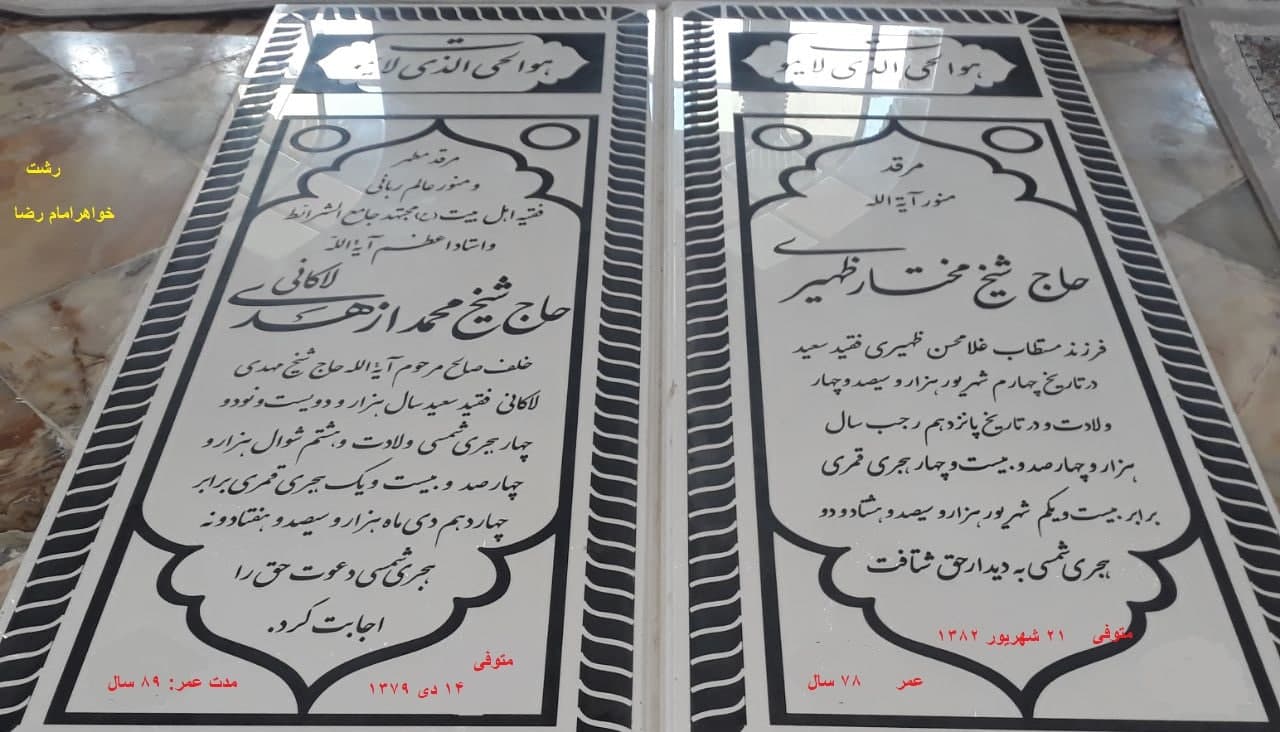 هوالحی الذی لایموت
مرقد
منور آیة الله
حاج شیخ مختار ظهیری
فرزند مستطاب غلامحسن ظهیری فقید سعید
در تاریخ چهارم شهریور هزار و سیصد و چهار
ولادت و در تاریخ پانزدهم رجب سال
هزار و چهارصد و بیست و چهار هجری قمری
برابر بیست و یکم شهریور هزار و سیصد و هشتاد و دو
هجری شمسی به دیدار حق شتافت
متوفی ۲۱ شهریور ۱۳۸۲
عمر ۷۸ سال
هوالحی الذی لایموت
مرقد مطهر
و منور عالم ربانی
فقیه اهل بیت (ع) مجتهد جامع الشرائط
و استاد اعظم آیة الله
حاج شیخ محمد ازهدی لاکانی
خلف صالح مرحوم آیة الله حاج شیخ مهدی
لاکانی فقید سعید سال هزار و دویست و نود و
چهار هجری شمسی ولادت و هشتم شوال هزار و
چهارصد و بیست و یک هجری قمری برابر
چهاردهم دی ماه هزار و سیصد و هفتاد و نه
هجری شمسی دعوت حق را
اجابت کرد.
متوفی
۱۴ دی ۱۳۷۹
مدت عمر: ۸۹ سال
رشت
خواهرامام رضا